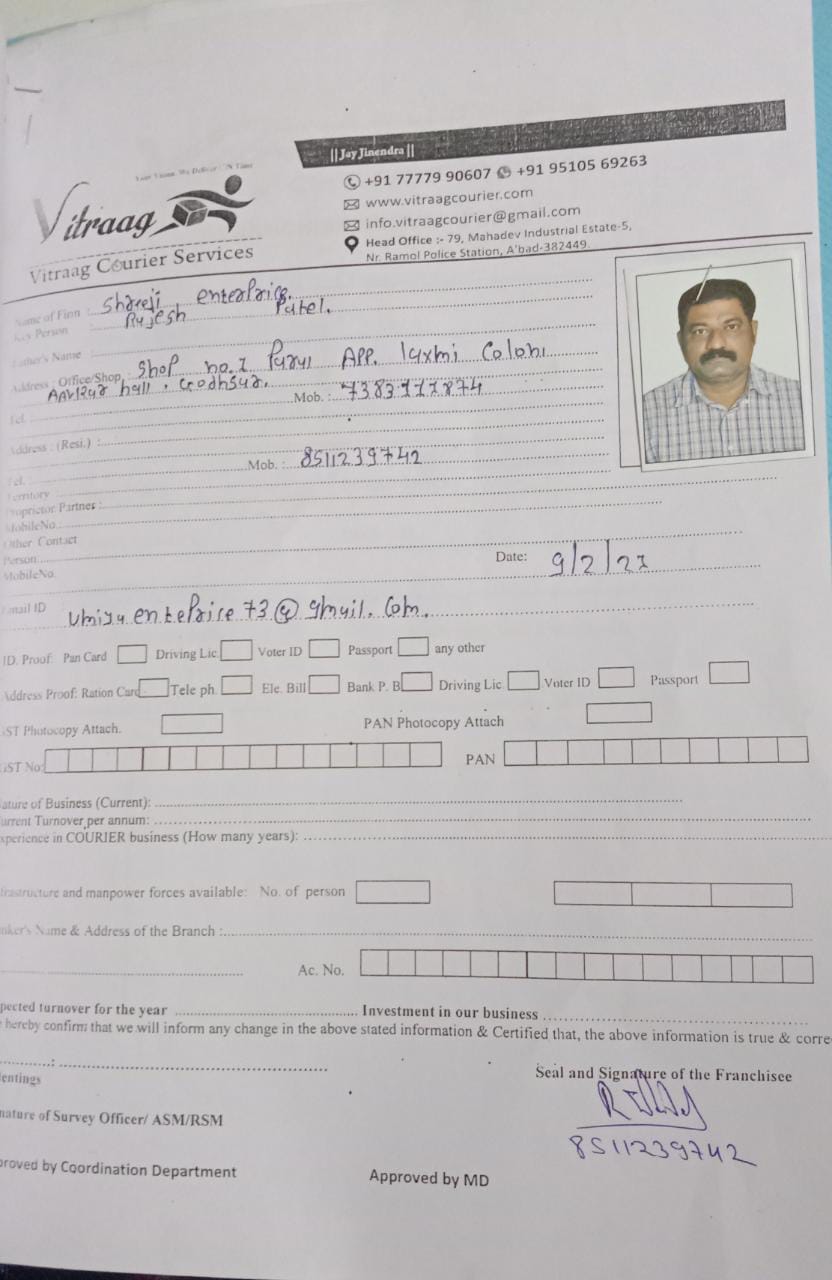 || Jay Jinendra ||
+91 77779 90607 +91 95105 69263
www.vitraagcourier.com
info.vitraagcourier@gmail.com
Head Office :- 79, Mahadev Industrial Estate-5,
Nr. Ramol Police Station, A'bad-382449.
Vitraag
Vitraag Courier Services
Name of Firm : Shreeji enterprice.
Key Person : Rajesh Patel.
Father's Name
Address : Office/Shop. Shop no. App. laxmi Coloni
hall,
Tel. Mob. :
Address : (Resi.) :
Tel. Mob. : 8511239742
Territory
Proprietor Partner :
MobileNo.
Other Contact
Person
MobileNo. Date: 9/2/21
Email ID enteprice73@gmail.com.
ID. Proof: Pan Card Driving Lic. Voter ID Passport any other
Address Proof: Ration Card Tele ph. Ele. Bill Bank P. B Driving Lic Voter ID Passport
GST Photocopy Attach. PAN Photocopy Attach
GST No: PAN
ature of Business (Current):
urrent Turnover per annum:
xperience in COURIER business (How many years):
frastructure and manpower forces available: No. of person
nker's Name & Address of the Branch :
Ac. No.
pected turnover for the year Investment in our business
hereby confirm that we will inform any change in the above stated information & Certified that, the above information is true & corre
entings
Seal and Signature of the Franchisee
nature of Survey Officer/ ASM/RSM
8511239742
roved by Coordination Department
Approved by MD